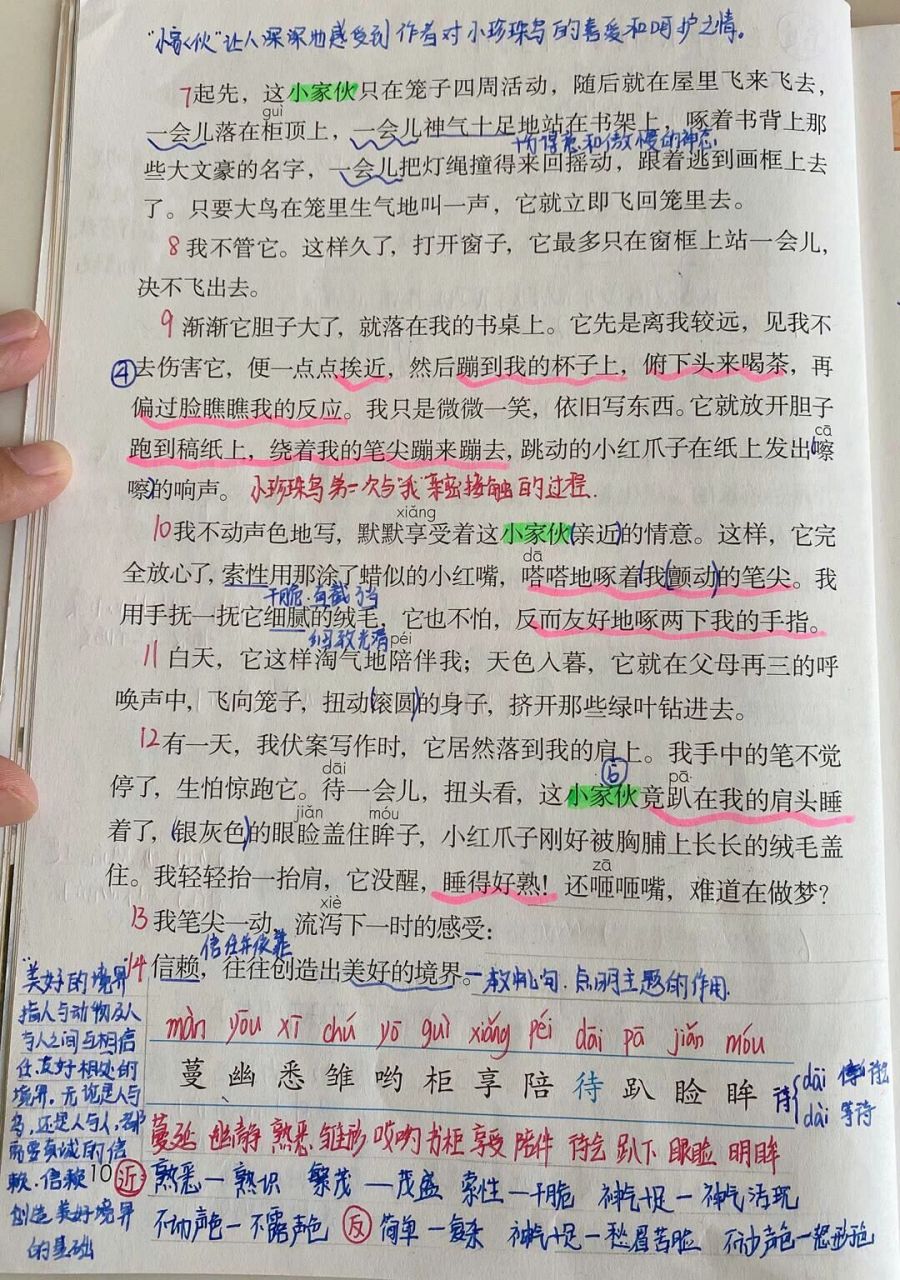 “小家伙”让人深深地感受到作者对小珍珠鸟的喜爱和呵护之情。
7起先，这小家伙只在笼子四周活动，随后就在屋里飞来飞去，
guì
一会儿落在柜顶上，一会儿神气十足地站在书架上，啄着书背上那
十分得意和傲慢的神态
些大文豪的名字，一会儿把灯绳撞得来回摇动，跟着逃到画框上去
了。只要大鸟在笼里生气地叫一声，它就立即飞回笼里去。
8我不管它。这样久了，打开窗子，它最多只在窗框上站一会儿，
决不飞出去。
9渐渐它胆子大了，就落在我的书桌上。它先是离我较远，见我不
④去伤害它，便一点点挨近，然后蹦到我的杯子上，俯下头来喝茶，再
偏过脸瞧瞧我的反应。我只是微微一笑，依旧写东西。它就放开胆子
cā
跑到稿纸上，绕着我的笔尖蹦来蹦去，跳动的小红爪子在纸上发出(嚓
嚓)的响声。小珍珠鸟第一次与“我”亲密接触的过程.
xiǎng
10我不动声色地写，默默享受着这小家伙(亲近)的情意。这样，它完
dā
全放心了，索性用那涂了蜡似的小红嘴，嗒嗒地啄着我(颤动)的笔尖。我
干脆.直截了当
用手抚一抚它细腻的绒毛，它也不怕，反而友好地啄两下我的手指。
细致光滑
péi
11白天，它这样淘气地陪伴我；天色入暮，它就在父母再三的呼
唤声中，飞向笼子，扭动(滚圆)的身子，挤开那些绿叶钻进去。
12有一天，我伏案写作时，它居然落到我的肩上。我手中的笔不觉
dāi ⑥ pā
停了，生怕惊跑它。待一会儿，扭头看，这小家伙竟趴在我的肩头睡
jiǎn móu
着了，(银灰色)的眼睑盖住眸子，小红爪子刚好被胸脯上长长的绒毛盖
zā
住。我轻轻抬一抬肩，它没醒，睡得好熟！还咂咂嘴，难道在做梦？
xiè
13我笔尖一动，流泻下一时的感受：
信任并依靠
14信赖，往往创造出美好的境界。
点明主题的作用.
“美好的境界”
指人与动物及人
与人之间互相信
任.友好相处的
境界,无论是人与
鸟,还是人与人,都
需要真诚的信
赖.信赖
创造美好境界
的基础
màn yōu xī chú yō guì xiǎng péi dāi pā jiǎn móu
蔓 幽 悉 雏 哟 柜 享 陪 待 趴 睑 眸
待{dāi 待一待会
dài 等待
蔓延 幽静 熟悉 雏形 哎哟 书柜 享受 陪伴 待会 趴下 眼睑 明眸
10
近 熟悉—熟识 繁茂—茂盛 索性—干脆 神气十足—神气活现
不动声色—不露声色 反 简单—复杂 神气十足—愁眉苦脸 不动声色—怒形于色